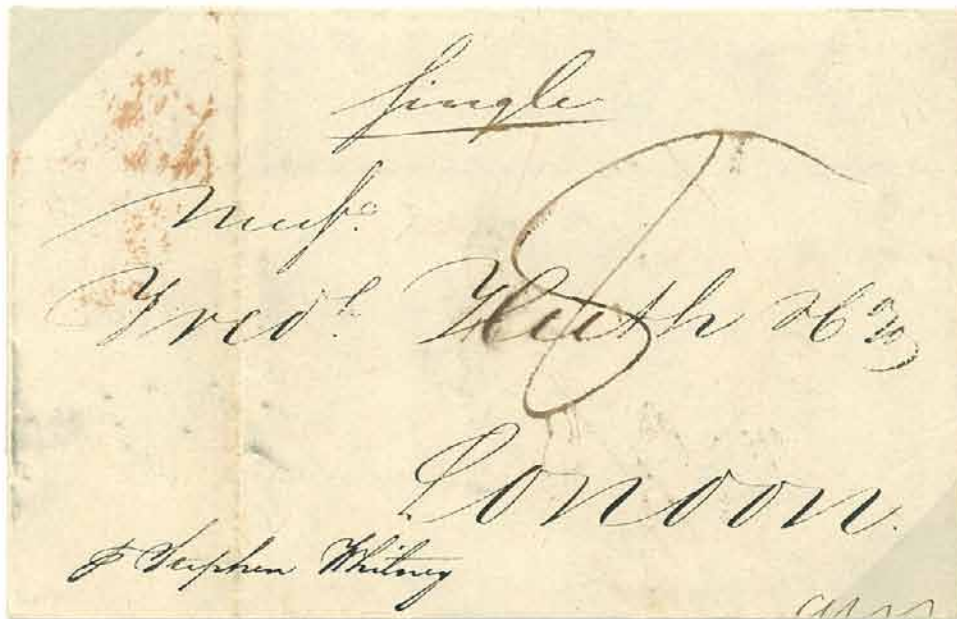 Single
Messrs.
Fredk. Huth & Co.
8
London.
p Stephen Whitney